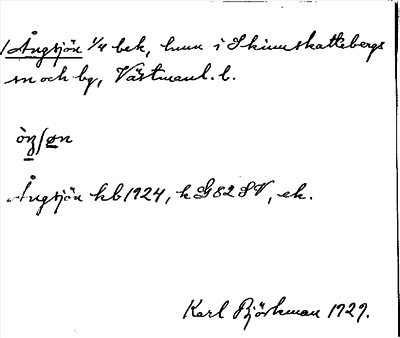 Ångsjön 1/4 bek, hmn i Skinnskattebergs
sn och bg, Västmanl. l.
Ångsjön hb 1924, k G82SV, ek.
Karl Björkman 1929.